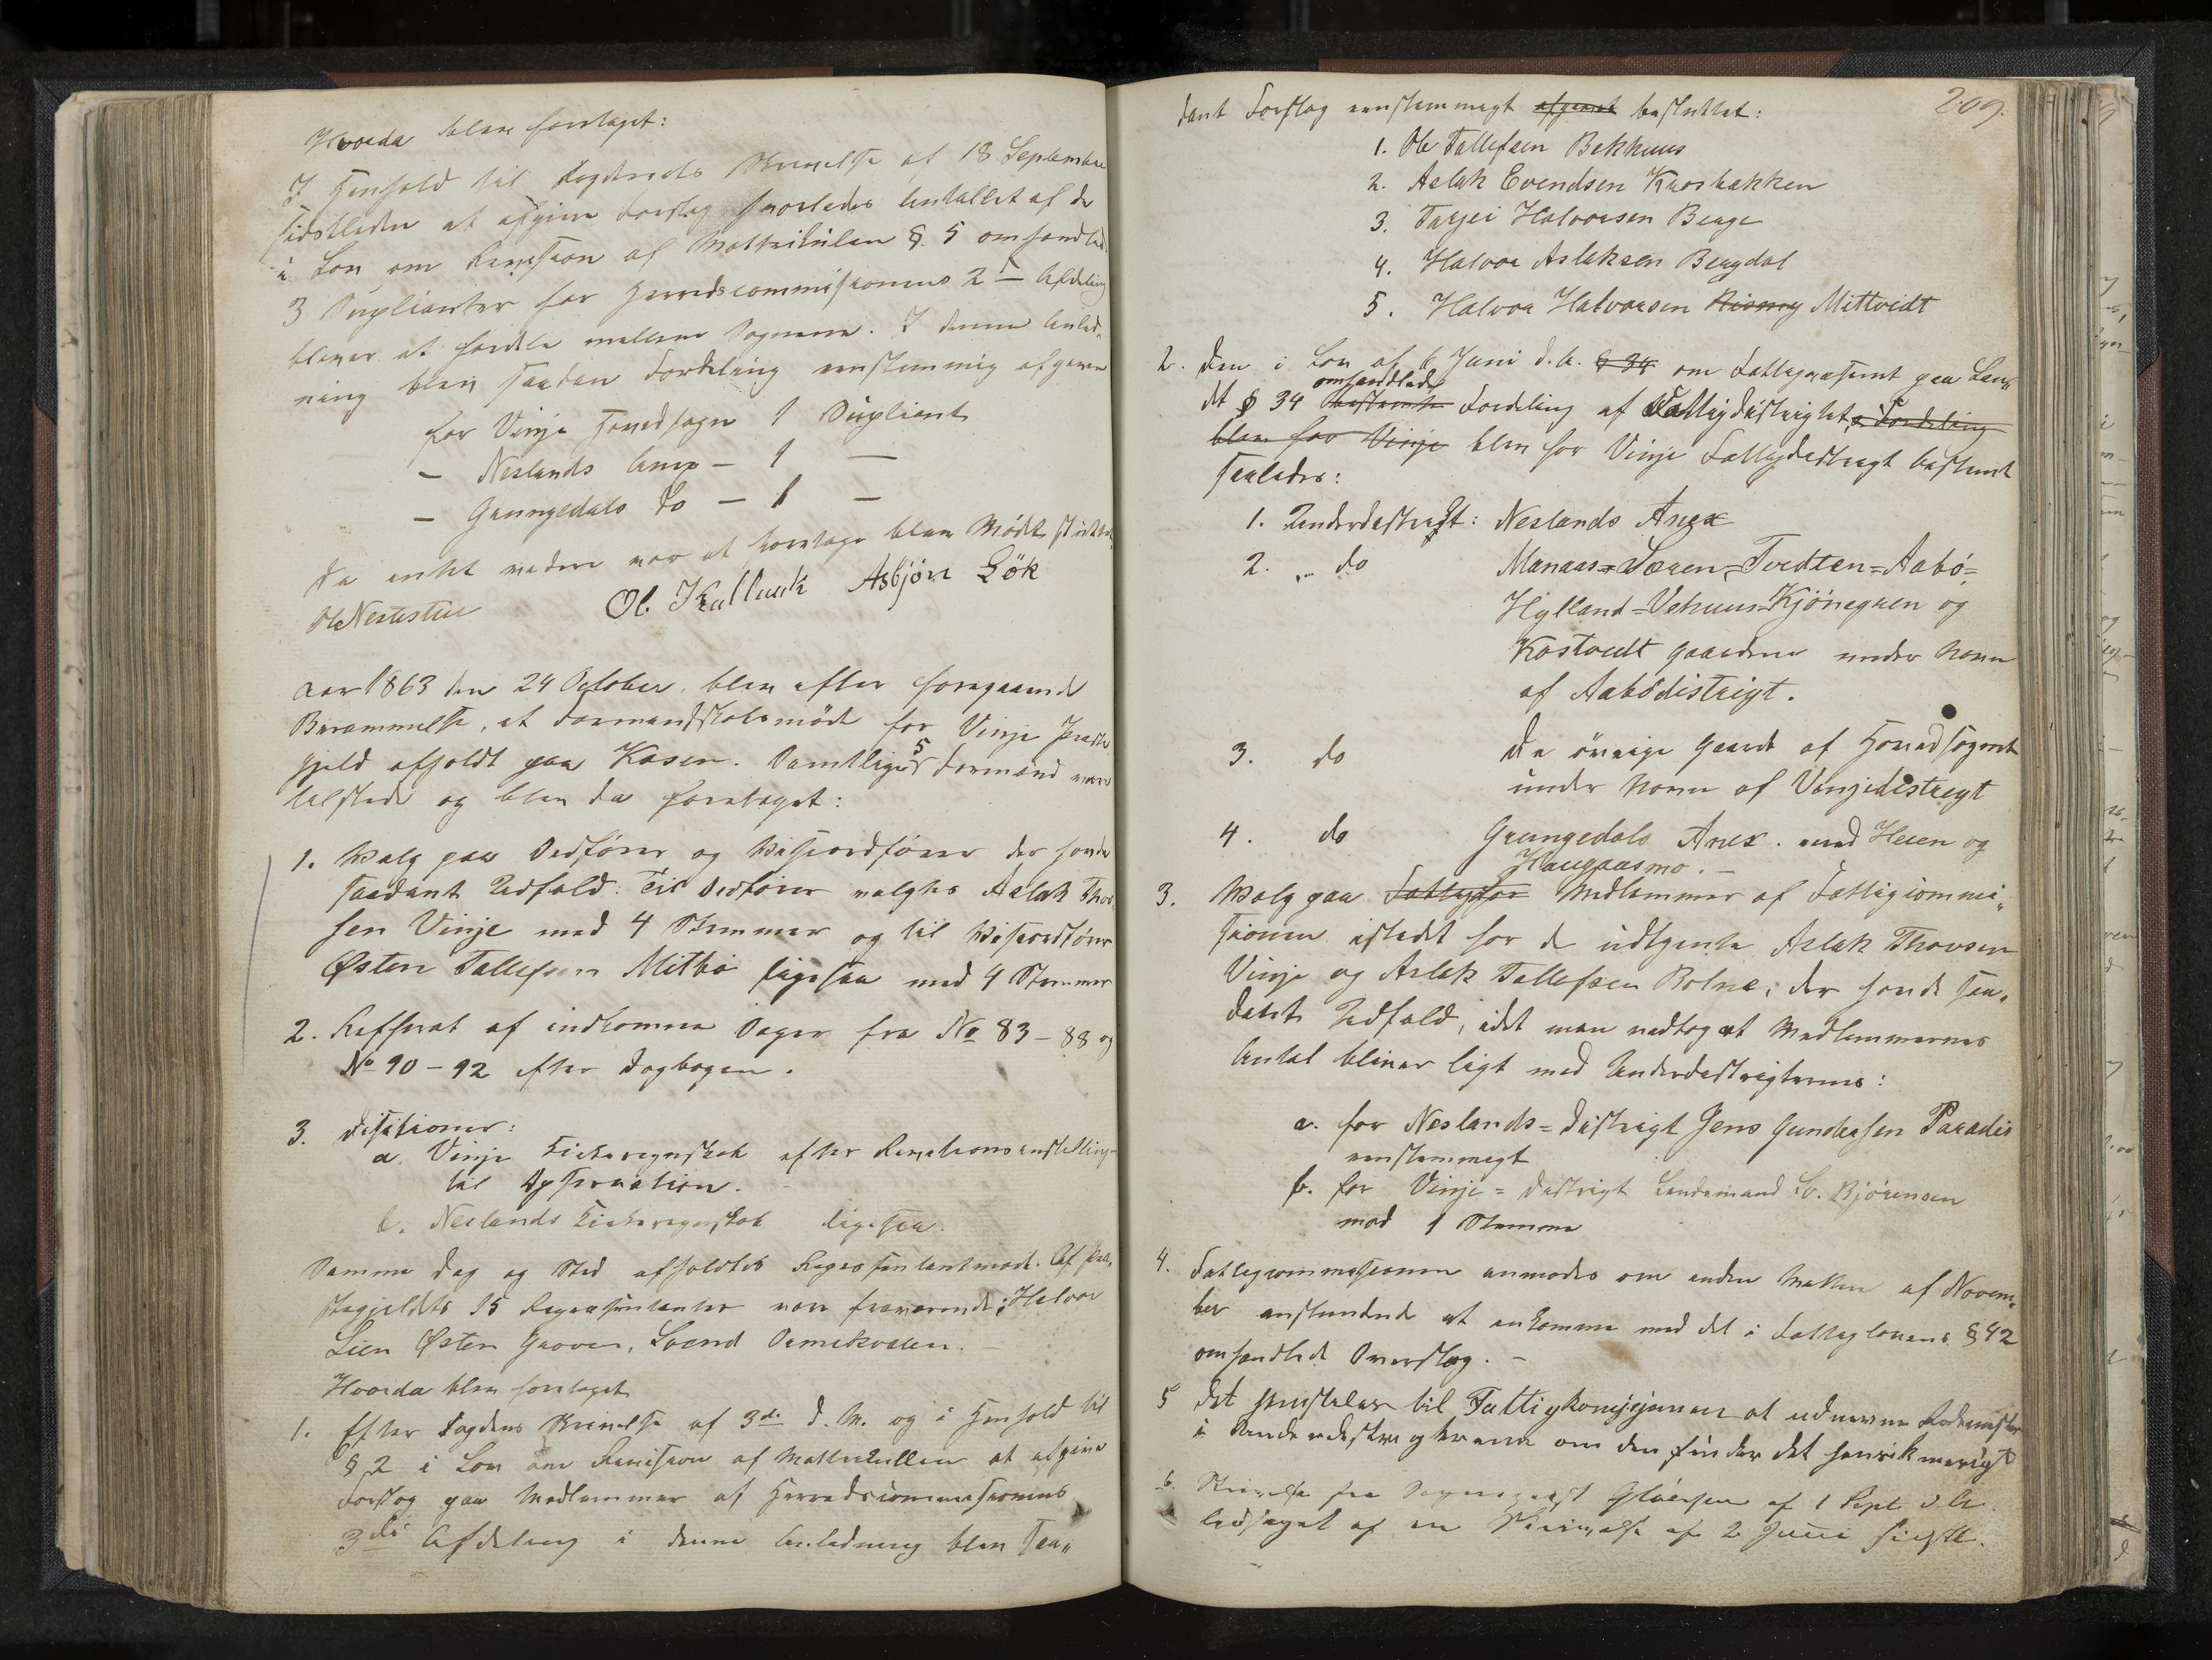 Hvorda blev foretaget:
I Henhold til Fogdens Skrivelse af 18 September
sidstleden at afgive Forslag hvorledes Antallet af de
i Lov om Revision af Matrikulen § 5 omhandlede
3 Suplianter for Herredscommisionens 2den Afdeling
bliver at fordele mellem Sognene. I denne Anled-
ning blev saadan Fordeling eenstemmig afgiven
for Vinje Hovedsogn 1 Supliant
— Neslands Anex — 1 —
— Grungedals Do — 1 —
Da intet videre var at foretage blev Mødet sluttet.
Ole Nestestu Ol. Kallaak Asbjörn Lök
Aar 1863 den 24 October, blev efter foregaaende
Berammelse, et Formandskabsmöde for Vinje Præste
gjeld afholdt paa Kosen. Samtlige 5 Formænd vare
tilstede og blev da foretaget:
1. Valg paa Ordfører og Viseordfører der havde
saadant Udfald: Til Ordfører valgtes Aslak Thov-
sen Vinje med 4 Stemmer og til Viseordfører
Østen Tallefsen Mitbø ligesaa med 4 Stemmer
2. Refferat af indkomne Sager fra No 83 - 88 og
No 90 - 92 efter Dagbogen.
3. Desitioner:
a. Vinje Kirkeregnskab efter Revisions anstilling
til Opservation.
b. Neslands Kirkeregnskab ligesaa.
Samme Dag og Sted afholdtes Repræsentantmöde. Af Præ-
stegjeldets 15 Repræsentanter vare fraværende: Halvor
Lien Østen Groven, Svend
Hvorda blev foretaget
1. Efter Fogdens Skrivelse af 3de d. M. og i Henhold til
§ 2 i Lov om Revision af Matrikullen at afgive
Forslag paa Medlemmer af Herredscommisionens
3die Afdeling i denne Anledning blev saa„
209.
dant Forslag eenstemmigt afgivet besluttet:
1. Ole Tallefsen Bekhuus
2. Aslak Evendsen Krosbækken
3. Tarjei Halvorsen Berge
4. Halvor Aslaksen Bergdal
5. Halvor Halvorsen Mittveidt
2. Den i Lov af 6 Juni d. A. § 34 om Fattigvæsenet paa Lan„
omhandlede
det § 34 bestemte Fordeling af Fattigdistrigtet, s Fordeling
blev for Vinje blev for Vinje Fattigdistrigt bestemt
saaledes:
1. Underdistrigt: Neslands Anex
2. „ do Manaas = Særen = Tvedten = Aabö =
Hylland = Vehuus = Kjönegren og
Kostveit gaardene under Navn
af Aabödistrigt.
3. do De övrige Gaarde af Hovedsognet
under Navn af Vinjedistrigt
4. do Grungedals Anex. med Heien og
Haugaasmo. —
3. Valg paa Fattigfor Medlemmer af Fattigcommi„
sionen istedet for de udtgente Aslak Thovsen
Vinje og Aslak Tallefsen Bolne, der havde saa„
dant Udfald, idet man vedtog at Medlemmernes
Antal bliver ligt med Underdistrigternes:
a. for Neslands = Distrigt Jens Gundersen Paradis
eenstemmigt
b. for Vinje = Distrigt Lendsmand S. Bjørensen
mod 1 Stemme
4. Fattigcommisionen anmodes om inden Midten af Novem„
ber anstundende at inkomme med det i Fattiglovens § 42
omhandlede Overslag. —
5 Det henstelles til Fattigkomisjonen at udnævne Rodemester
i Underdistrigterne om den finder det hensikmesigt
6. Skrivelse fra Sogneprest af 1 Sept d. A.
ledsaget af en Skrivelse af 2 Juni sidstl.